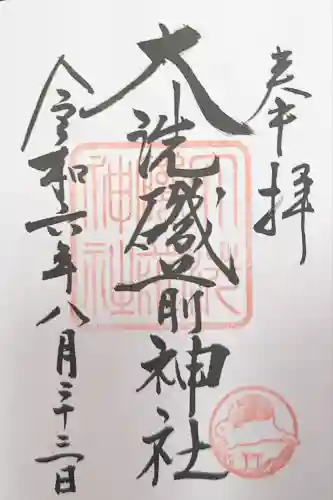 奉拝
大洗磯前神社
令和六年八月二十三日